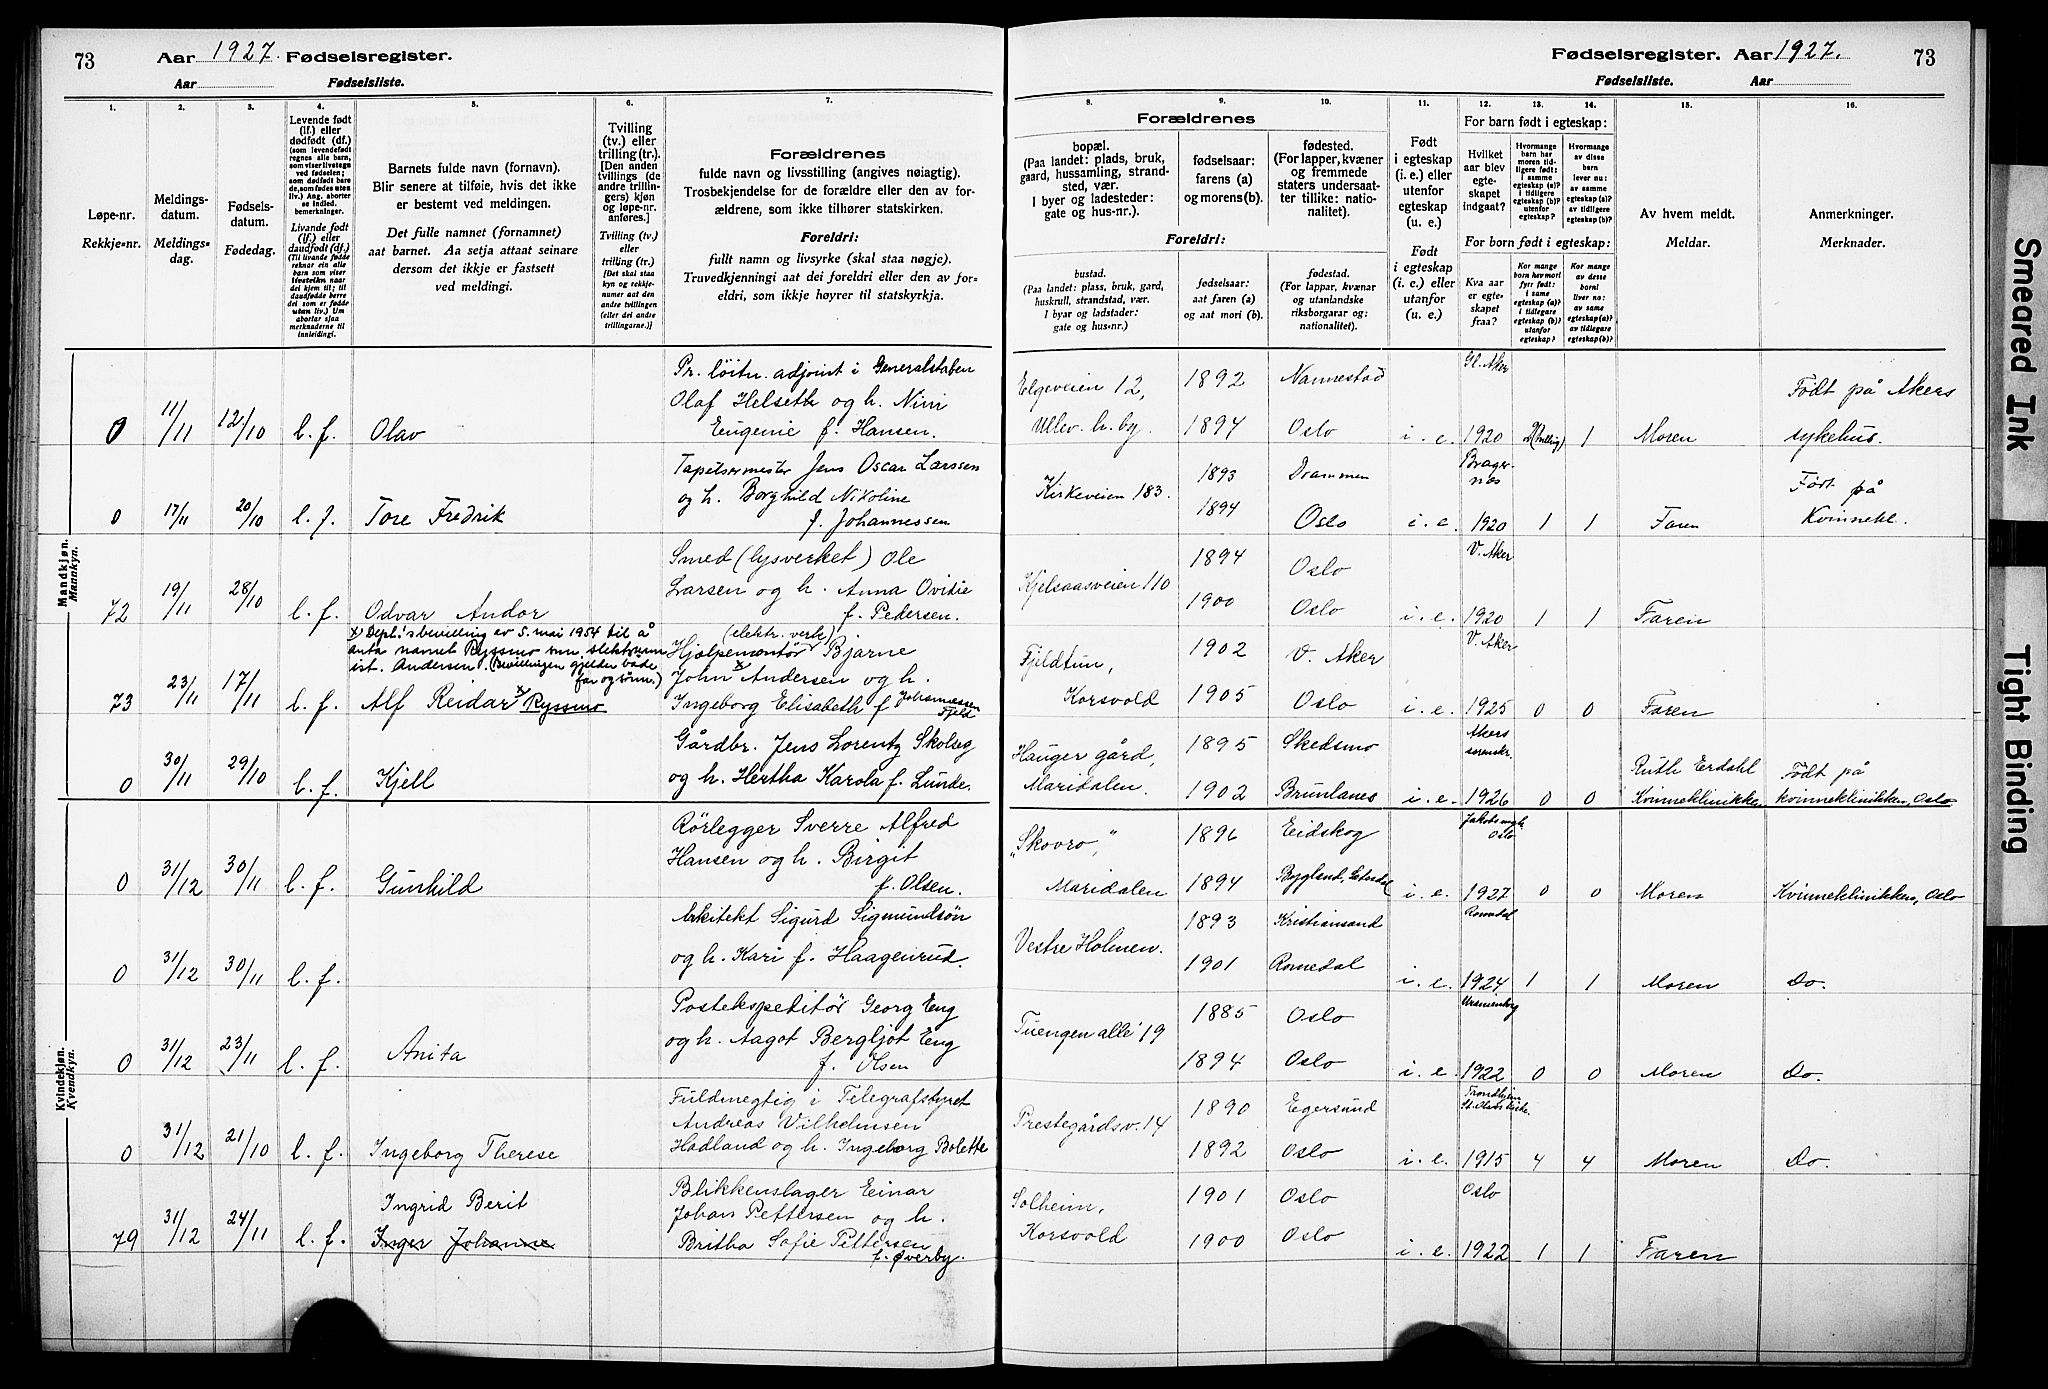 73 Aar 1927. Fødselsregister.
Aar Fødselsliste.
Fødselsregister. Aar 1927. 73
Fødselsliste. Aar
1. 2. 3. 4. 5. 6. 7.
Løpe-nr.
Rekkje-nr.
Meldings-
datum.
Meldings-
dag.
Fødsels-
datum.
Fødedag.
Levende født
(lf.) eller
dødfødt (df.)
Livande fødd
(lf.) eller
daudfødt (df.)
Barnets fulde navn (fornavn).
Blir senere at tilføie, hvis det ikke
er bestemt ved meldingen.
Det fulle namnet (fornamnet)
aat barnet. Aa setja attaat seinare
dersom det ikkje er fastsett
ved meldingi.
Tvilling
(tv.) eller
trilling (tr.)
[Den anden
tvillings (de
andre trillin-
gers) kjøn
og løpe-nr.
anføres.]
Tvilling (tv.)
eller
trilling (tr.)
[Det skal staa
kyn og rekkje-
numer aat den
andre tvillingen
(eller dei andre
trillingarne.)]
Forældrenes
fulde navn og livsstilling (angives nøiagtig).
Trosbekjendelse for de forældre eller den av for-
ældrene, som ikke tilhører statskirken.
Foreldri:
fullt namn og livsyrke (skal staa nøgje).
Truvedkjenningi aat dei foreldri eller den av for-
eldri, som ikkje høyrer til statskyrkja.
8. 9. 10. 11. 12. 13. 14. 15. 16.
Forældrenes
bopæl.
(Paa landet: plads, bruk,
gaard, hussamling, strand-
sted, vær.
I byer og ladesteder:
gate og hus-nr.).
Foreldri:
bustad.
(Paa landet: plass, bruk, gard,
huskrull, strandstad, vær.
I byar og ladstader:
gate og hus-nr.)
fødselsaar:
farens (a)
og morens(b).
fødselsaar:
aat faren (a)
og aat mori (b).
fødested.
(For lapper, kvæner
og fremmede
staters undersaat-
ter tillike: natio-
nalitet).
fødestad.
(For lappar, kvænar
og utanlandske
riksborgarar og:
nationalitet).
Født
i egteskap
(i. e.) eller
utenfor
egteskap
(u. e.)
Født
i egteskap
(i. e.) eller
utanfor
(u. e.)
For barn født i egteskap:
Hvilket
aar blev
egte-
skapet
indgaat?
For born født i egteskap:
Kva aar
er egte-
skapet
fraa?
Av hvem meldt.
Meldar.
Anmerkninger.
Merknader.
Mandkjøn.
Mannkyn.
Pr. løitn. adjoint i Generalstaben
Olaf Helseth og h. Nini
Eugenie f. Hansen.
0 11/11 12/10 l. f. Olav
Elgeveien 12,
Ullev. h. by.
1892 Nannestad
1894 Oslo
i. e. Gl. Aker 1920 1 Moren
Født på Akers
sykehus.
Tapetsermester Jens Oscar Larssen
og h. Borghild Nikoline
f. Johannessen
0 17/11 20/10 l. f. Tore Fredrik
Kirkeveien 183.
1893 Drammen
1894 Oslo
i. e. Brager-
nes
1920 1 1 Faren
Født på
Kvinnekl.
Smed (lysverket) Ole
Larsen og h. Anna Ovidie
f. Pedersen.
72 19/11 28/10 l. f. Odvar Andor
Kjelsaasveien 110
1894 Oslo
1900 Oslo
i. e. V. Aker 1920 1 1 Faren
x) Dept.'s bevilling av 5. mai 1954 til å
anta namnet Ryssmo som slektsnamn
ist. Andersen. (Bevillingen gjelder både
far og sønn.)
73 23/11 17/11 l. f. Alf Reidar x Ryssmo
(elektr. verk)
Hjelpemontør Bjarne
John x Andersen og h.
Ingeborg Elisabeth f. Johannessen
Fjeld
Fjeldtun,
Korsvold
1902 V. Aker
1905 Oslo
i. e. V. Aker 1925 0 0 Faren
Gårdbr. Jens Lorentz Skolseg
og h. Hertha Karola f. Lunde.
0 30/11 29/10 l. f. Kjell
Hauger gård,
Maridalen.
1895 Skedsmo
1902 Brunlanes
i. e. Akers
sorenskr.
1926 0 0
Ruth Erdahl
Kvinneklinikken
Født på
kvinneklinikken, Oslo
Kvindekjøn.
Kvendkyn.
Rørlegger Sverre Alfred
Hansen og h. Birgit
f. Olsen.
0 31/12 30/11 l. f. Gunhild
"Skovro",
Maridalen
1896 Eidskog
1894 Bygland, Setesdal
i. e. Oslo 1927 0 0 Moren Kvinneklinikken, Oslo
Arkitekt Sigurd Sigmundsøn
og h. Kari f. Haagenrud.
0 31/12 30/11 l. f.
Vestre Holmen.
1893 Kristiansand
1901 Romedal
i. e. Romedal 1924 1 1 Moren Do.
Postekspeditør Georg Eng
og h. Aagot Bergljot Eng
f. Olsen
0 31/12 23/11 l. f. Anita
Tuengen allé 19
1885 Oslo
1894 Oslo
i. e. Uranienborg 1922 0 0 Moren Do.
Fuldmegtig i Telegrafstyret
Andreas Vilhelmsen
Hadland og h. Ingeborg Bolette
0 31/12 21/10 l. f. Ingeborg Therese
Prestegårdsv. 14
1890 Egersund
1892 Oslo
i. e. Trondhjem
St. Olavs kirke.
1915 4 4 Moren Do.
Blikkenslager Einar
Johan Pettersen og h.
Britha Sofie Pettersen
f. Øverby.
Ingrid Berit
79 31/12 24/11 l. f. Inger Johanne
Solheim,
Korsvold
1901 Oslo
1900 Oslo
i. e. Oslo 1922 1 1 Faren
Smeared Ink
Tight Binding